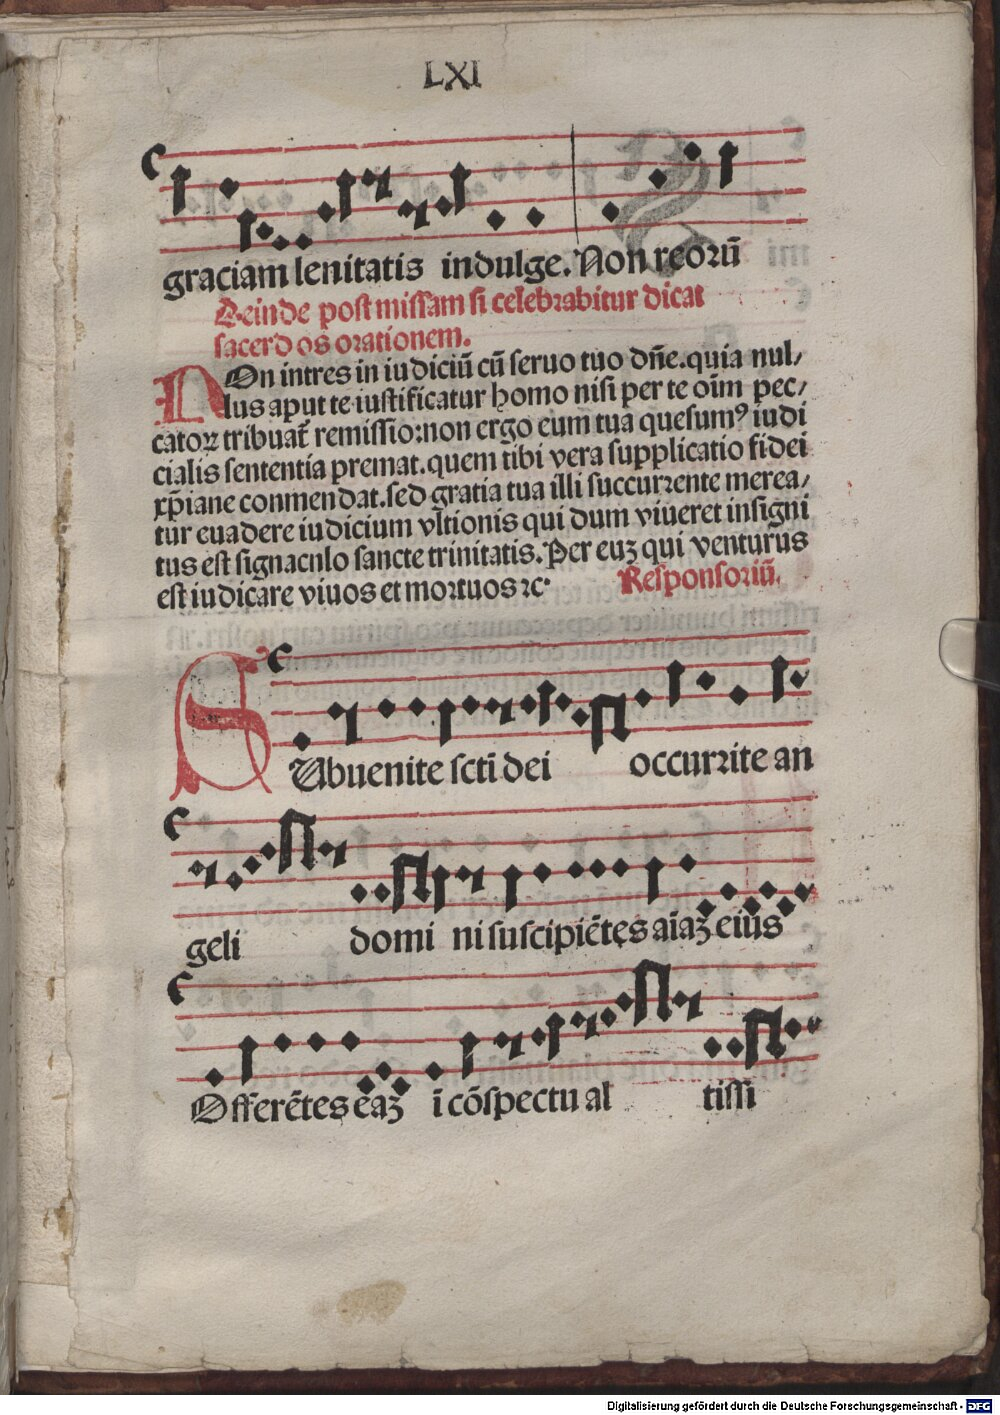 LXI
graciam lenitatis indulge. Non reorū
Deinde post missam si celebrabitur dicat
sacerdos orationem.
NOn intres in iudiciū cū seruo tuo dn̄e. quia nul/
lus aput te iustificatur homo nisi per te oīm pec/
catoꝝ tribuat̄ remissio: non ergo eum tua quesumꝰ iudi
cialis sententia premat. quem tibi vera supplicatio fidei
xp̄iane conmendat. sed gratia tua illi succurrente merea/
tur euadere iudicium vltionis qui dum viueret insigni
tus est signaculo sancte trinitatis. Per euꝫ qui venturus
est iudicare viuos et mortuos ⁊c·
Responsoriū.
SUbuenite sctī dei occurrite an
geli domi ni suscipiētes aīaꝫ eius
Offerētes eaꝫ ī cōspectu al tissi
Digitalisierung gefördert durch die Deutsche Forschungsgemeinschaft - DFG